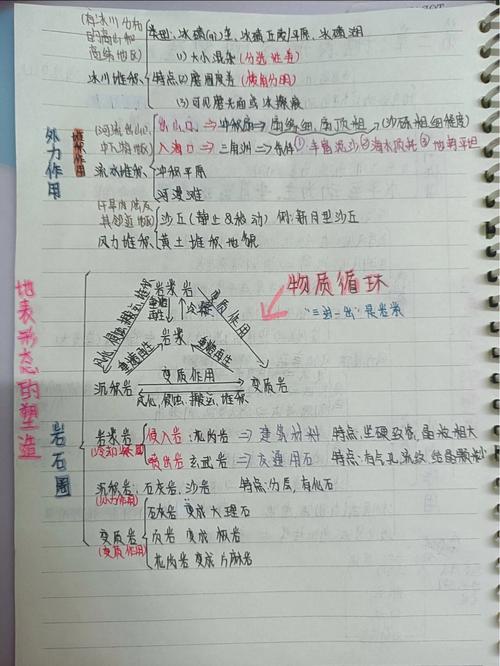 (有冰川分布的高山和高纬地区)
冰川堆积
类型:冰碛(湖)、冰碛丘陵/平原、冰碛湖
特点
(1)大小混杂(分选性差)
(2)磨圆度差(棱角分明)
(3)可见磨光面或冰擦痕
外力作用
堆积作用
(河流出山口、中下游地区)
流水堆积
出山口⇒冲积扇⇒扇缘细、扇顶粗→(沙砾粗细程度)
入海口⇒三角洲⇒条件①丰富泥沙②海水顶托③地形平坦
冲积平原
河漫滩
(干旱内陆及其邻近地区)
风力堆积
沙丘(静止&移动) 例:新月型沙丘
黄土堆积地貌
地表形态的塑造
岩石圈
物质循环
"三进一出"是岩浆
岩浆岩
风化、侵蚀、搬运、堆积
重熔再生
冷凝
变质作用
岩浆
重熔再生
重熔再生
沉积岩
变质作用
变质岩
风化、侵蚀、搬运、堆积
岩浆岩
(冷却凝固)
侵入岩:花岗岩⇒建筑材料 特点:坚硬致密、晶粒粗大
喷出岩:玄武岩⇒ 特点:有气孔、流纹、结晶颗粒小
沉积岩:石灰岩、沙岩 特点:分层、有化石
(外力作用)
变质岩
(变质作用)
石灰岩 变成 大理石
页岩 变成 板岩
花岗岩 变成 片麻岩